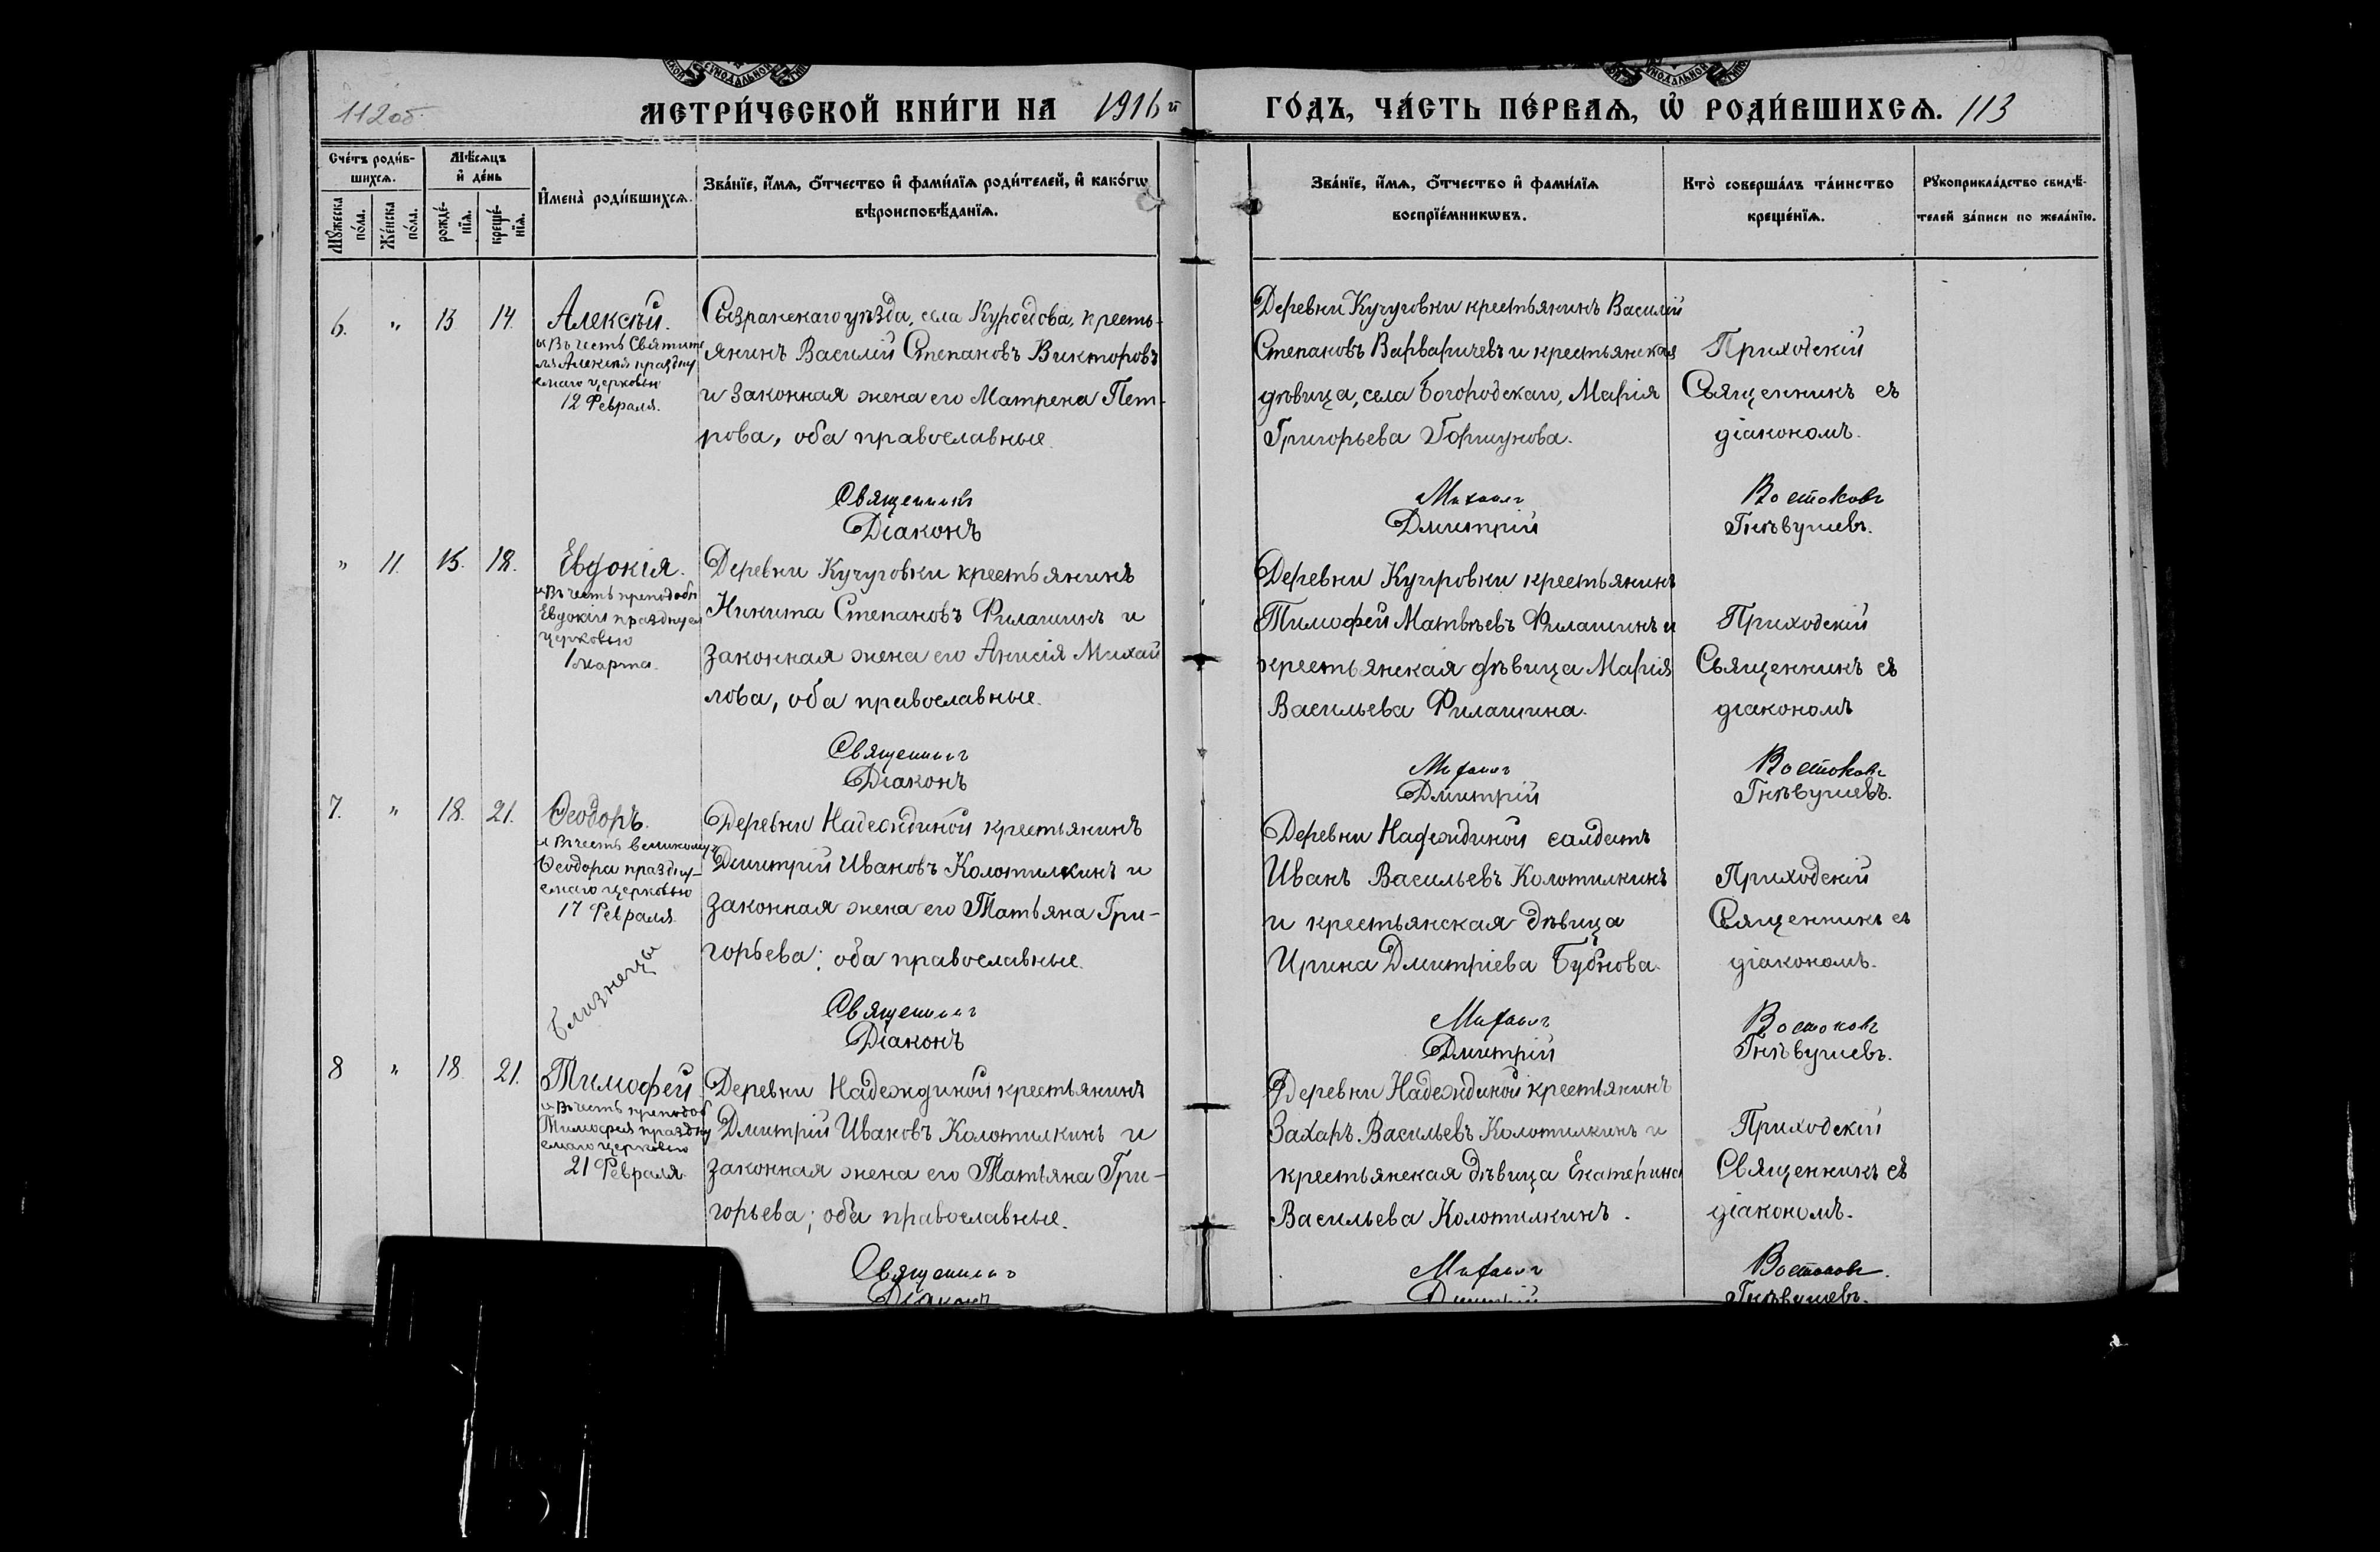 112об.
МЕТРИ́ЧЕСКОЙ КНИ́ГИ НА 1916й
ГО́ДЪ, ЧА́СТЬ ПЕ́РВАѦ, Ѡ҆ РОДИ́ВШИХСѦ. 113
Сче́тъ роди́в-
шихсѧ.
Мѣ́сѧцъ
и҆ де́нь
Мꙋ́жеска
по́ла.
Же́нска
по́ла.
рожде́-
нїѧ.
креще́-
нїѧ.
И҆мена̀ роди́вшихсѧ.
Зва́нїе, и҆́мѧ, ѻ҆́тчество и҆ фами́лїѧ роди́телей, и҆ како́гѡ
вѣроисповѣ́данїѧ.
Зва́нїе, и҆́мѧ, ѻ҆́тчество и҆ фами́лїѧ
воспрїе́мникѡвъ.
Кто̀ соверша́лъ та́инство
креще́нїѧ.
Рꙋкоприкла́дство свидѣ́-
телей за́писи по жела́нїю.
6. " 13 14.
Алексѣй.
въ честь Святите
ля Алексія праздну
емаго церковью
12 Февраля.
Сызранскаго уѣзда, села Куроѣдова, кресть-
янинъ Василій Степановъ Викторовъ
и законная жена его Матрена Пет-
рова, оба православные.
Деревни Кучуговки крестьянинъ Василій
Степановъ Варваричевъ и крестьянская
дѣвица, села Богородскаго, Марія
Григорьева Горшунова.
Приходскій
Священникъ съ
діакономъ.
Священникъ Михаилъ Востоковъ
Діаконъ Дмитрій Гнѣвушевъ.
" 11. 15. 18.
Евдокія.
въ честь преподобн
Евдокіи празднуем
церковью
1 марта.
Деревни Кучуговки крестьянинъ
Никита Степановъ Филашинъ и
законная жена его Анисія Михай
лова, оба православные.
Деревни Кучуровки крестьянинъ
Тимофей Матвѣевъ Филашинъ и
крестьянская дѣвица Марія
Васильева Филашина.
Приходскій
Священникъ съ
діакономъ
Священникъ Михаилъ Востоковъ
Діаконъ Дмитрій Гнѣвушевъ.
7. " 18. 21.
Ѳеодоръ.
въ честь великому
Ѳеодора праздну-
емаго церковью
17 Февраля
Деревни Надеждиной крестьянинъ
Дмитрій Ивановъ Колотилкинъ и
законная жена его Татьяна Гри-
горьева; оба православные.
Деревни Надеждиной салдатъ
Иванъ Васильевъ Колотилкинъ
и крестьянская дѣвица
Ирина Дмитріева Бубнова.
Приходскій
Священникъ съ
діакономъ.
Близнецы
Священникъ Михаилъ Востоковъ
Діаконъ Дмитрій Гнѣвушевъ.
8 " 18. 21.
Тимофей
въ честь преподоб
Тимофея праздну
емаго церковью
21 Февраля.
Деревни Надеждиной крестьянинъ
Дмитрій Ивановъ Колотилкинъ и
законная жена его Татьяна Гри-
горьева; оба православные.
Деревни Надеждиной крестьянинъ
Захаръ Васильевъ Колотилкинъ и
крестьянская дѣвица Екатерина
Васильева Колотилкинъ.
Приходскій
Священникъ съ
діакономъ.
Священникъ Михаилъ Востоковъ.
Діаконъ Дмитрій Гнѣвушевъ.